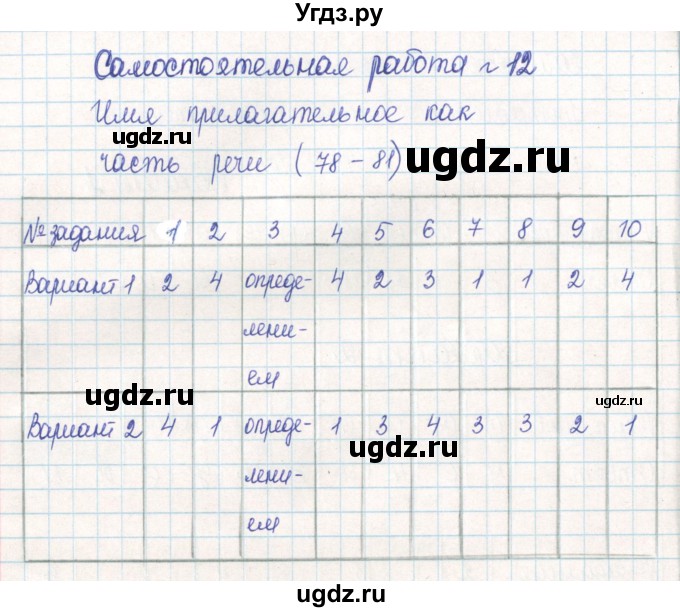 Угдз.ру
Самостоятельная работа № 12
Имя прилагательное как
ugdz.ru
часть речи (78-81)
ugdz.ru
№ задания 1 2 3 4 5 6 7 8 9 10
Вариант 1 2 4 опреде- 4 2 3 1 1 2 4
лени-
ем
ugdz.ru
ugdz.ru
Вариант 2 4 1 опреде- 1 3 4 3 3 2 1
ugdz.ru
лени-
ем
ugdz.ru